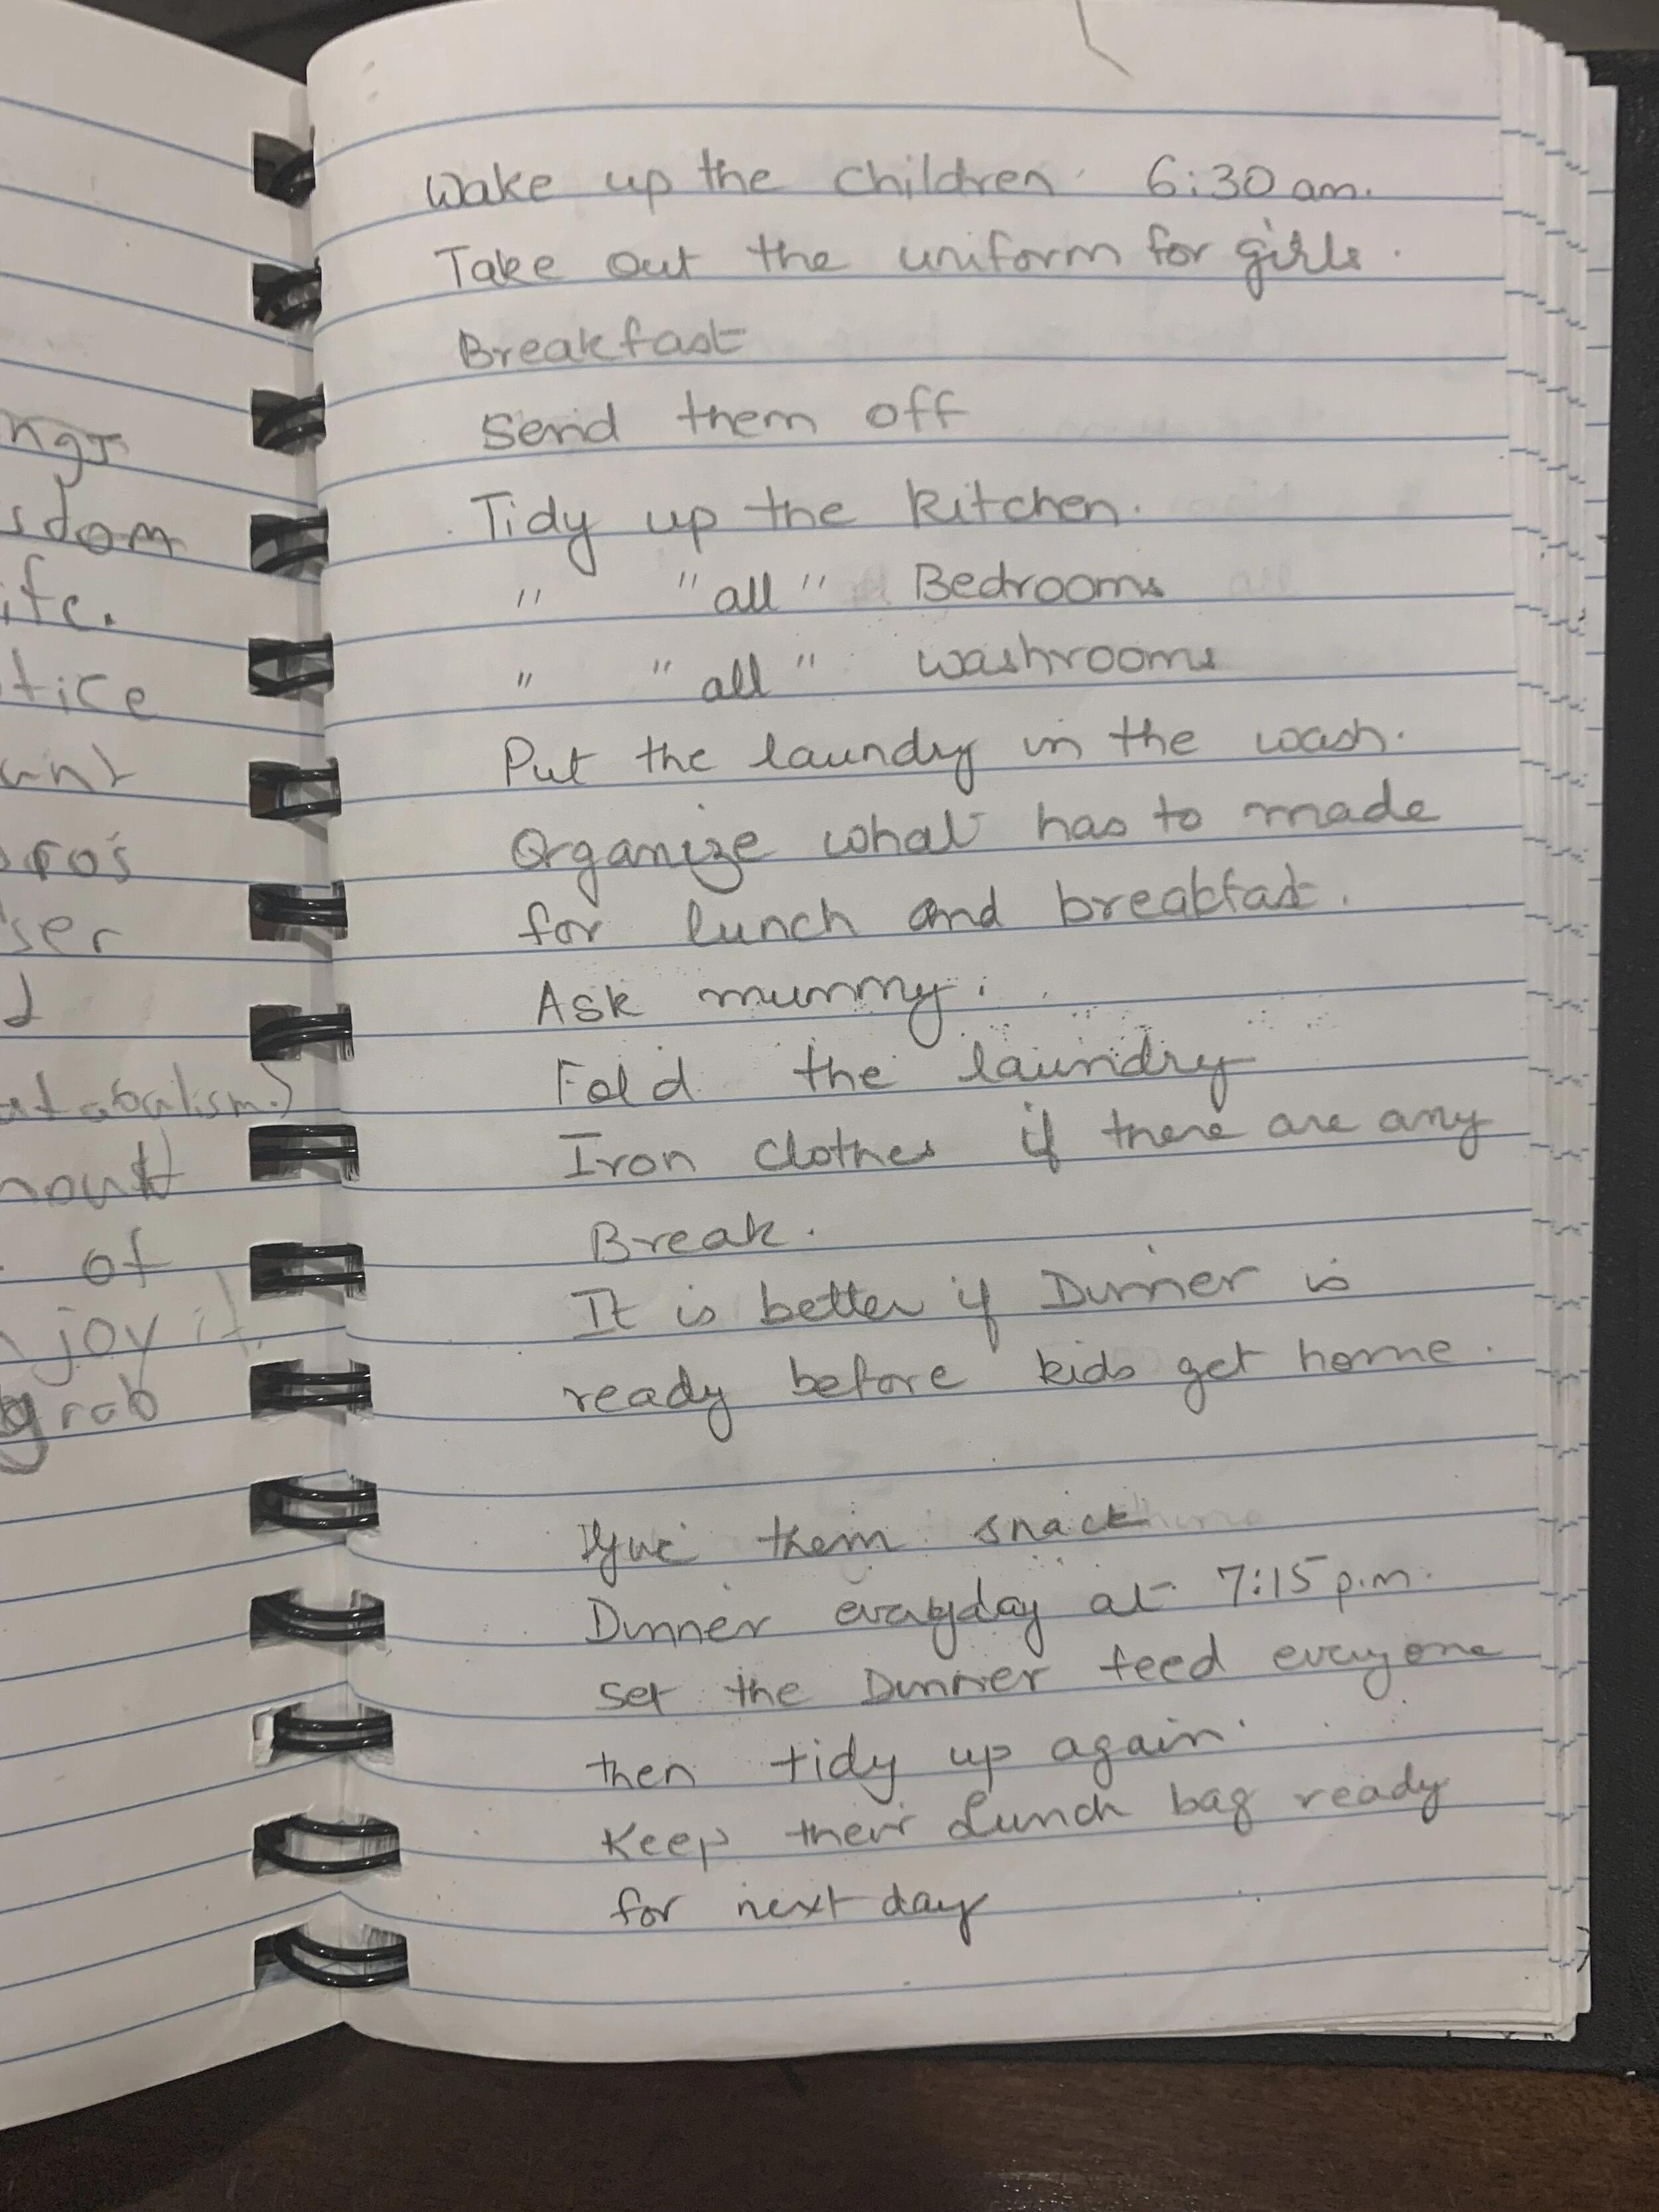 ngs
sdom
ife.
tice
unt
oro's
ser
d
atabalism.)
nount
of
njoy it.
grab
Wake up the children 6:30 am.
Take out the uniform for girls.
Breakfast
Send them off
Tidy up the kitchen.
" " all " Bedrooms
" " all " washrooms
Put the laundry in the wash.
Organize what has to made
for lunch and breakfast.
Ask mummy.
Fold the laundry
Iron clothes if there are any
Break.
It is better if Dinner is
ready before kids get home.
Give them snack
Dinner everyday at 7:15 p.m.
set the Dinner feed everyone
then tidy up again.
Keep their Lunch bag ready
for next day